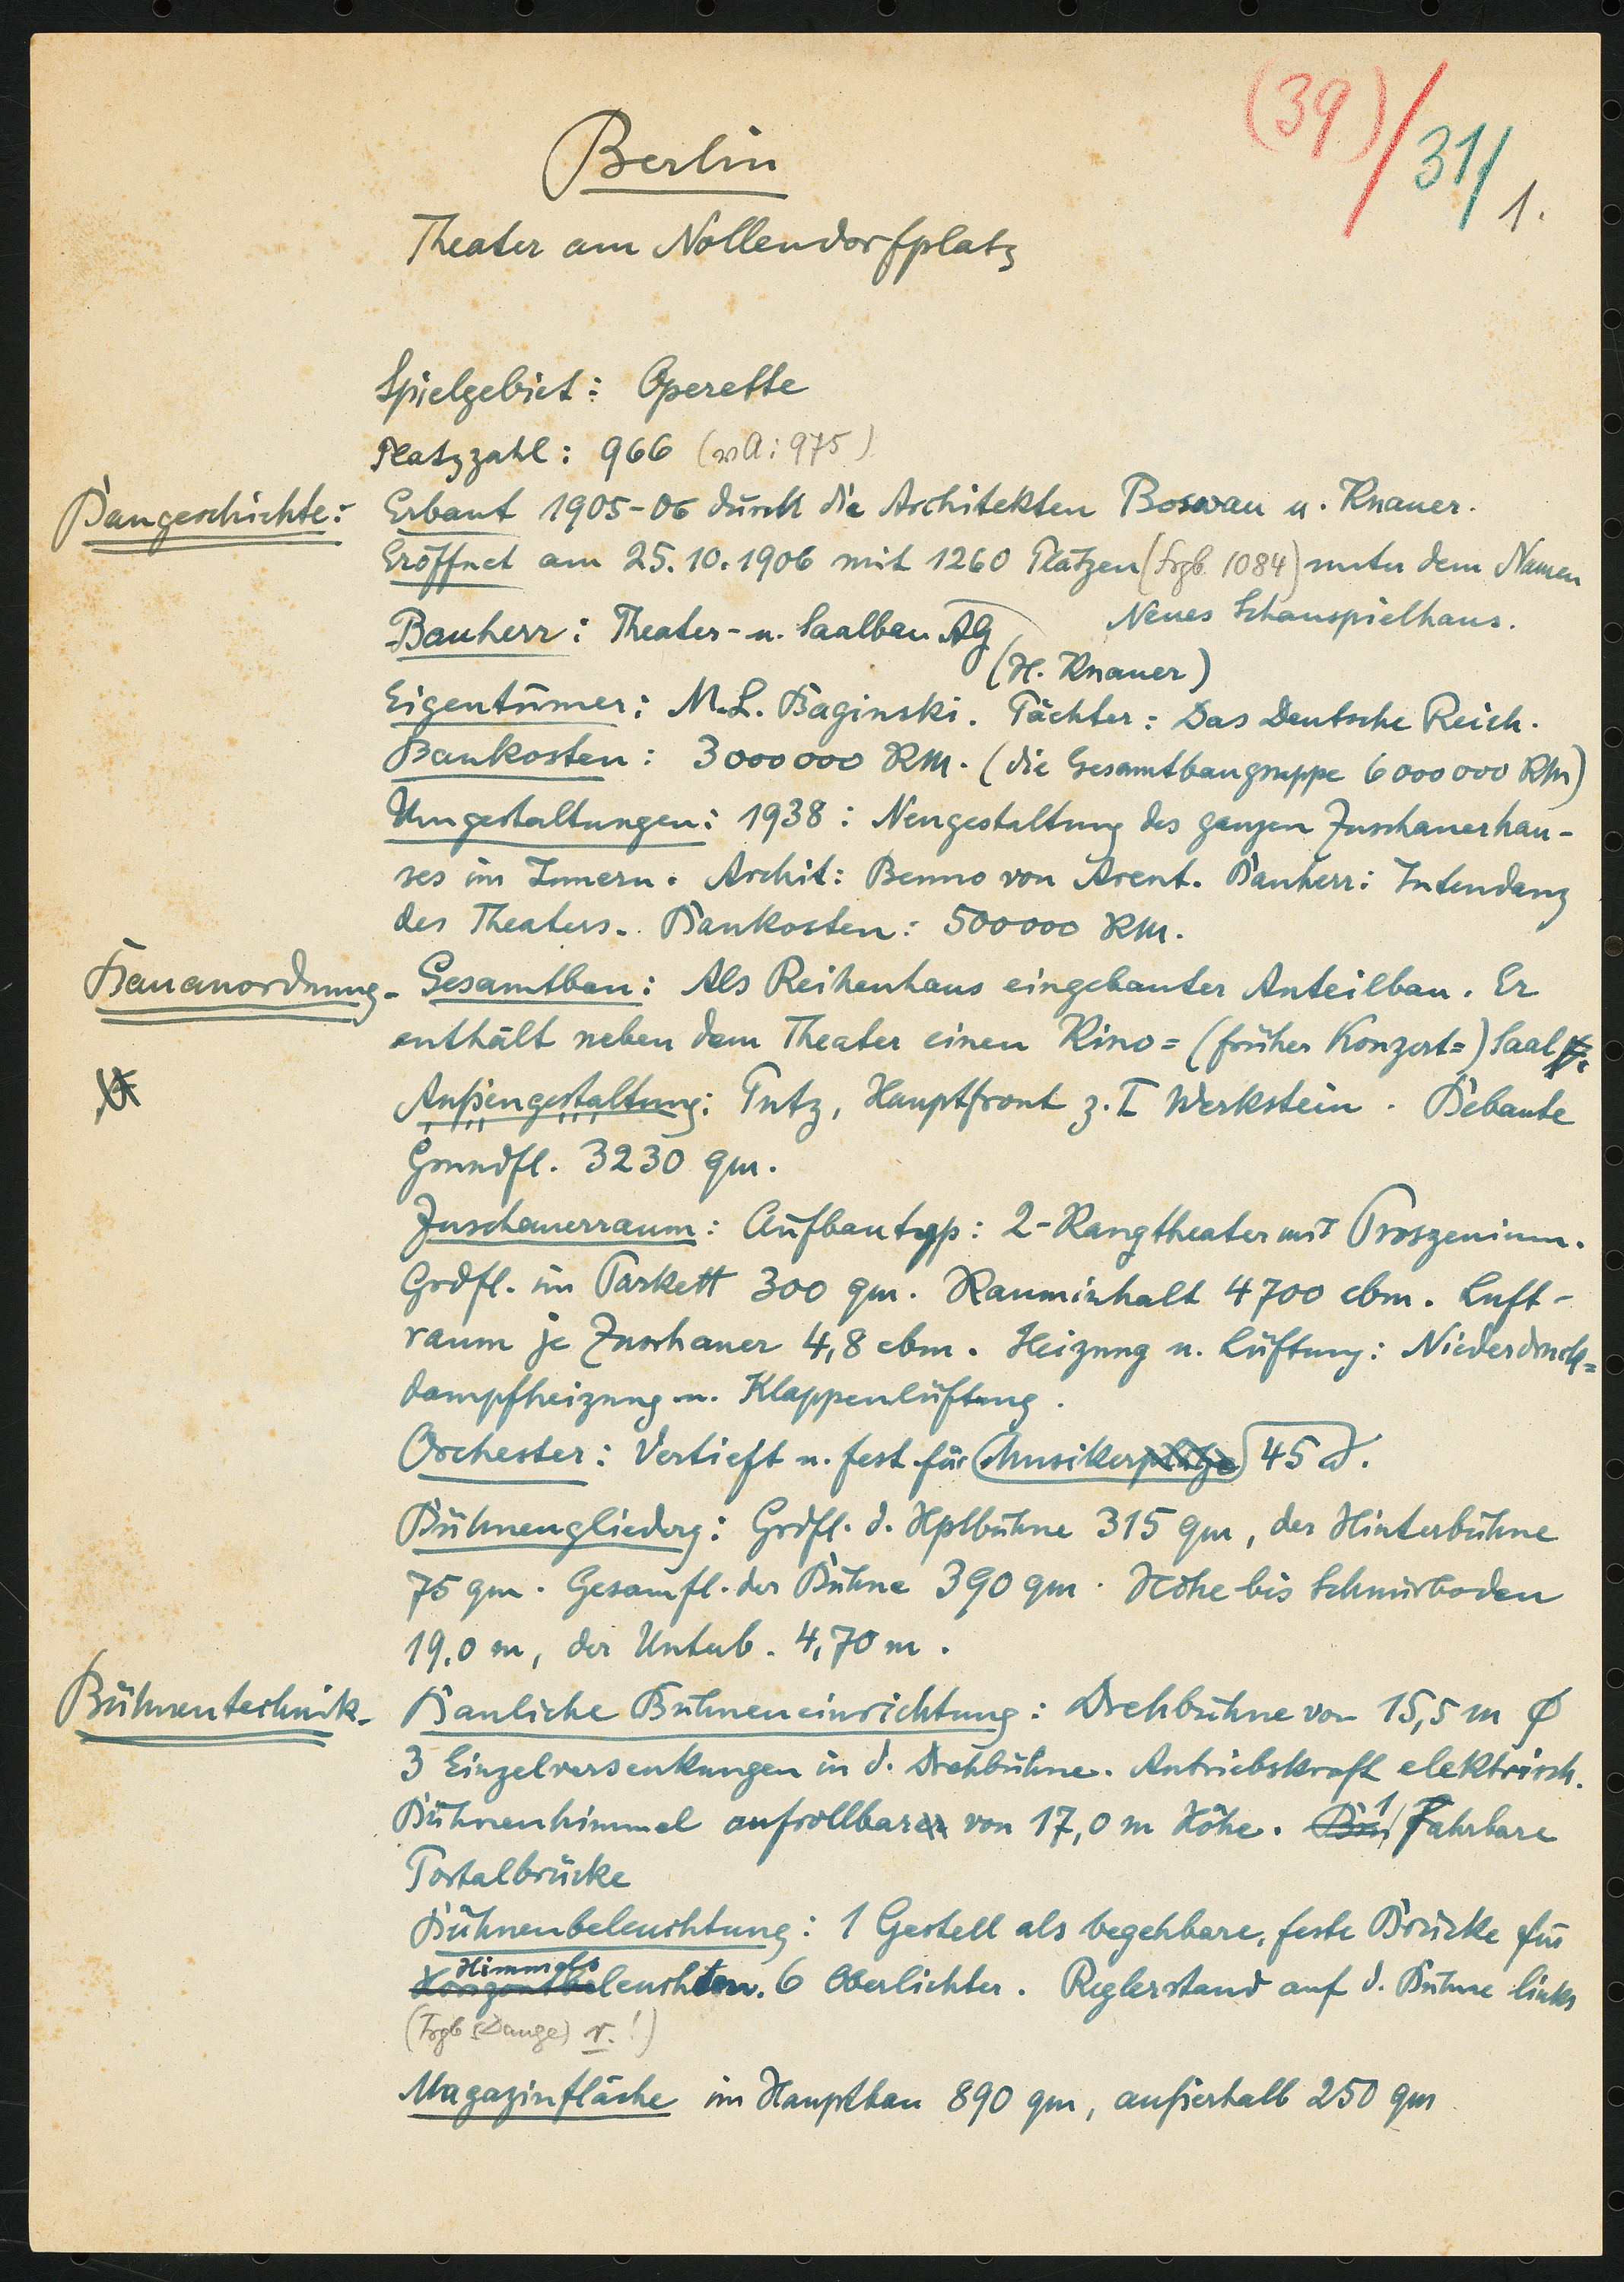 (39)/31/1.
Berlin
Theater am Nollendorfplatz
Spielgebiet: Operette
Platzzahl: 966 (vA: 975)
Baugeschichte: Erbaut 1905-06 durch die Architekten Boswau u. Knauer.
Eröffnet am 25.10.1906 mit 1260 Plätzen (Frgb. 1084) unter dem Namen
Neues Schauspielhaus.
Bauherr: Theater- u. Saalbau AG
(H. Knauer)
Eigentümer: M.L. Baginski. Pächter: Das Deutsche Reich.
Baukosten: 3000000 RM. (die Gesamtbaugruppe 6000000 RM)
Umgestaltungen: 1938: Neugestaltung des ganzen Zuschauerhau-
ses im Innern. Archit: Benno von Arent. Bauherr: Intendanz
des Theaters. Baukosten: 500000 RM.
Bauanordnung- Gesamtbau: Als Reihenhaus eingebauter Anteilbau. Er
enthält neben dem Theater einen Kino= (früher Konzert=) Saal
Außengestaltung: Putz, Hauptfront z.T Werkstein. Bebaute
Grundfl. 3230 qm.
Zuschauerraum: Aufbautyp: 2-Rangtheater mit Proszenium.
Grdfl. im Parkett 300 qm. Rauminhalt 4700 cbm. Luft-
raum je Zuschauer 4,8 cbm. Heizung u. Lüftung: Niederdruck=
dampfheizung u. Klappenlüftung.
Orchester: Vertieft u. fest für Musikerplätze 45.
Bühnengliederg: Grdfl. d. Hptbühne 315 qm, der Hinterbühne
75 qm. Gesamfl. der Bühne 390 qm. Höhe bis Schnürboden
19,0 m, der Unterb. 4,70 m.
Bühnentechnik- Bauliche Bühneneinrichtung: Drehbühne von 15,5 m Ø
3 Einzelversenkungen in d. Drehbühne. Antriebskraft elektrisch.
Bühnenhimmel aufrollbarer von 17,0 m Höhe. Bü 1 Fahrbare
Portalbrücke
Bühnenbeleuchtung: 1 Gestell als begehbare, feste Brücke für
Himmels
Horizontbeleuchten. 6 Oberlichter. Reglerstand auf d. Bühne links
(Frgb (Dauge) r.!)
Magazinfläche im Hauptbau 890 qm, außerhalb 250 qm